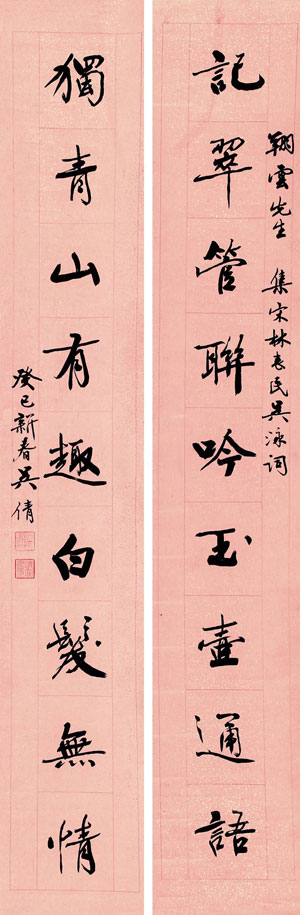 雲先生 集宋林表民吳泳詞
記翠管聯吟玉壺通語
獨青山有趣白髮無情
癸巳新春吳倩